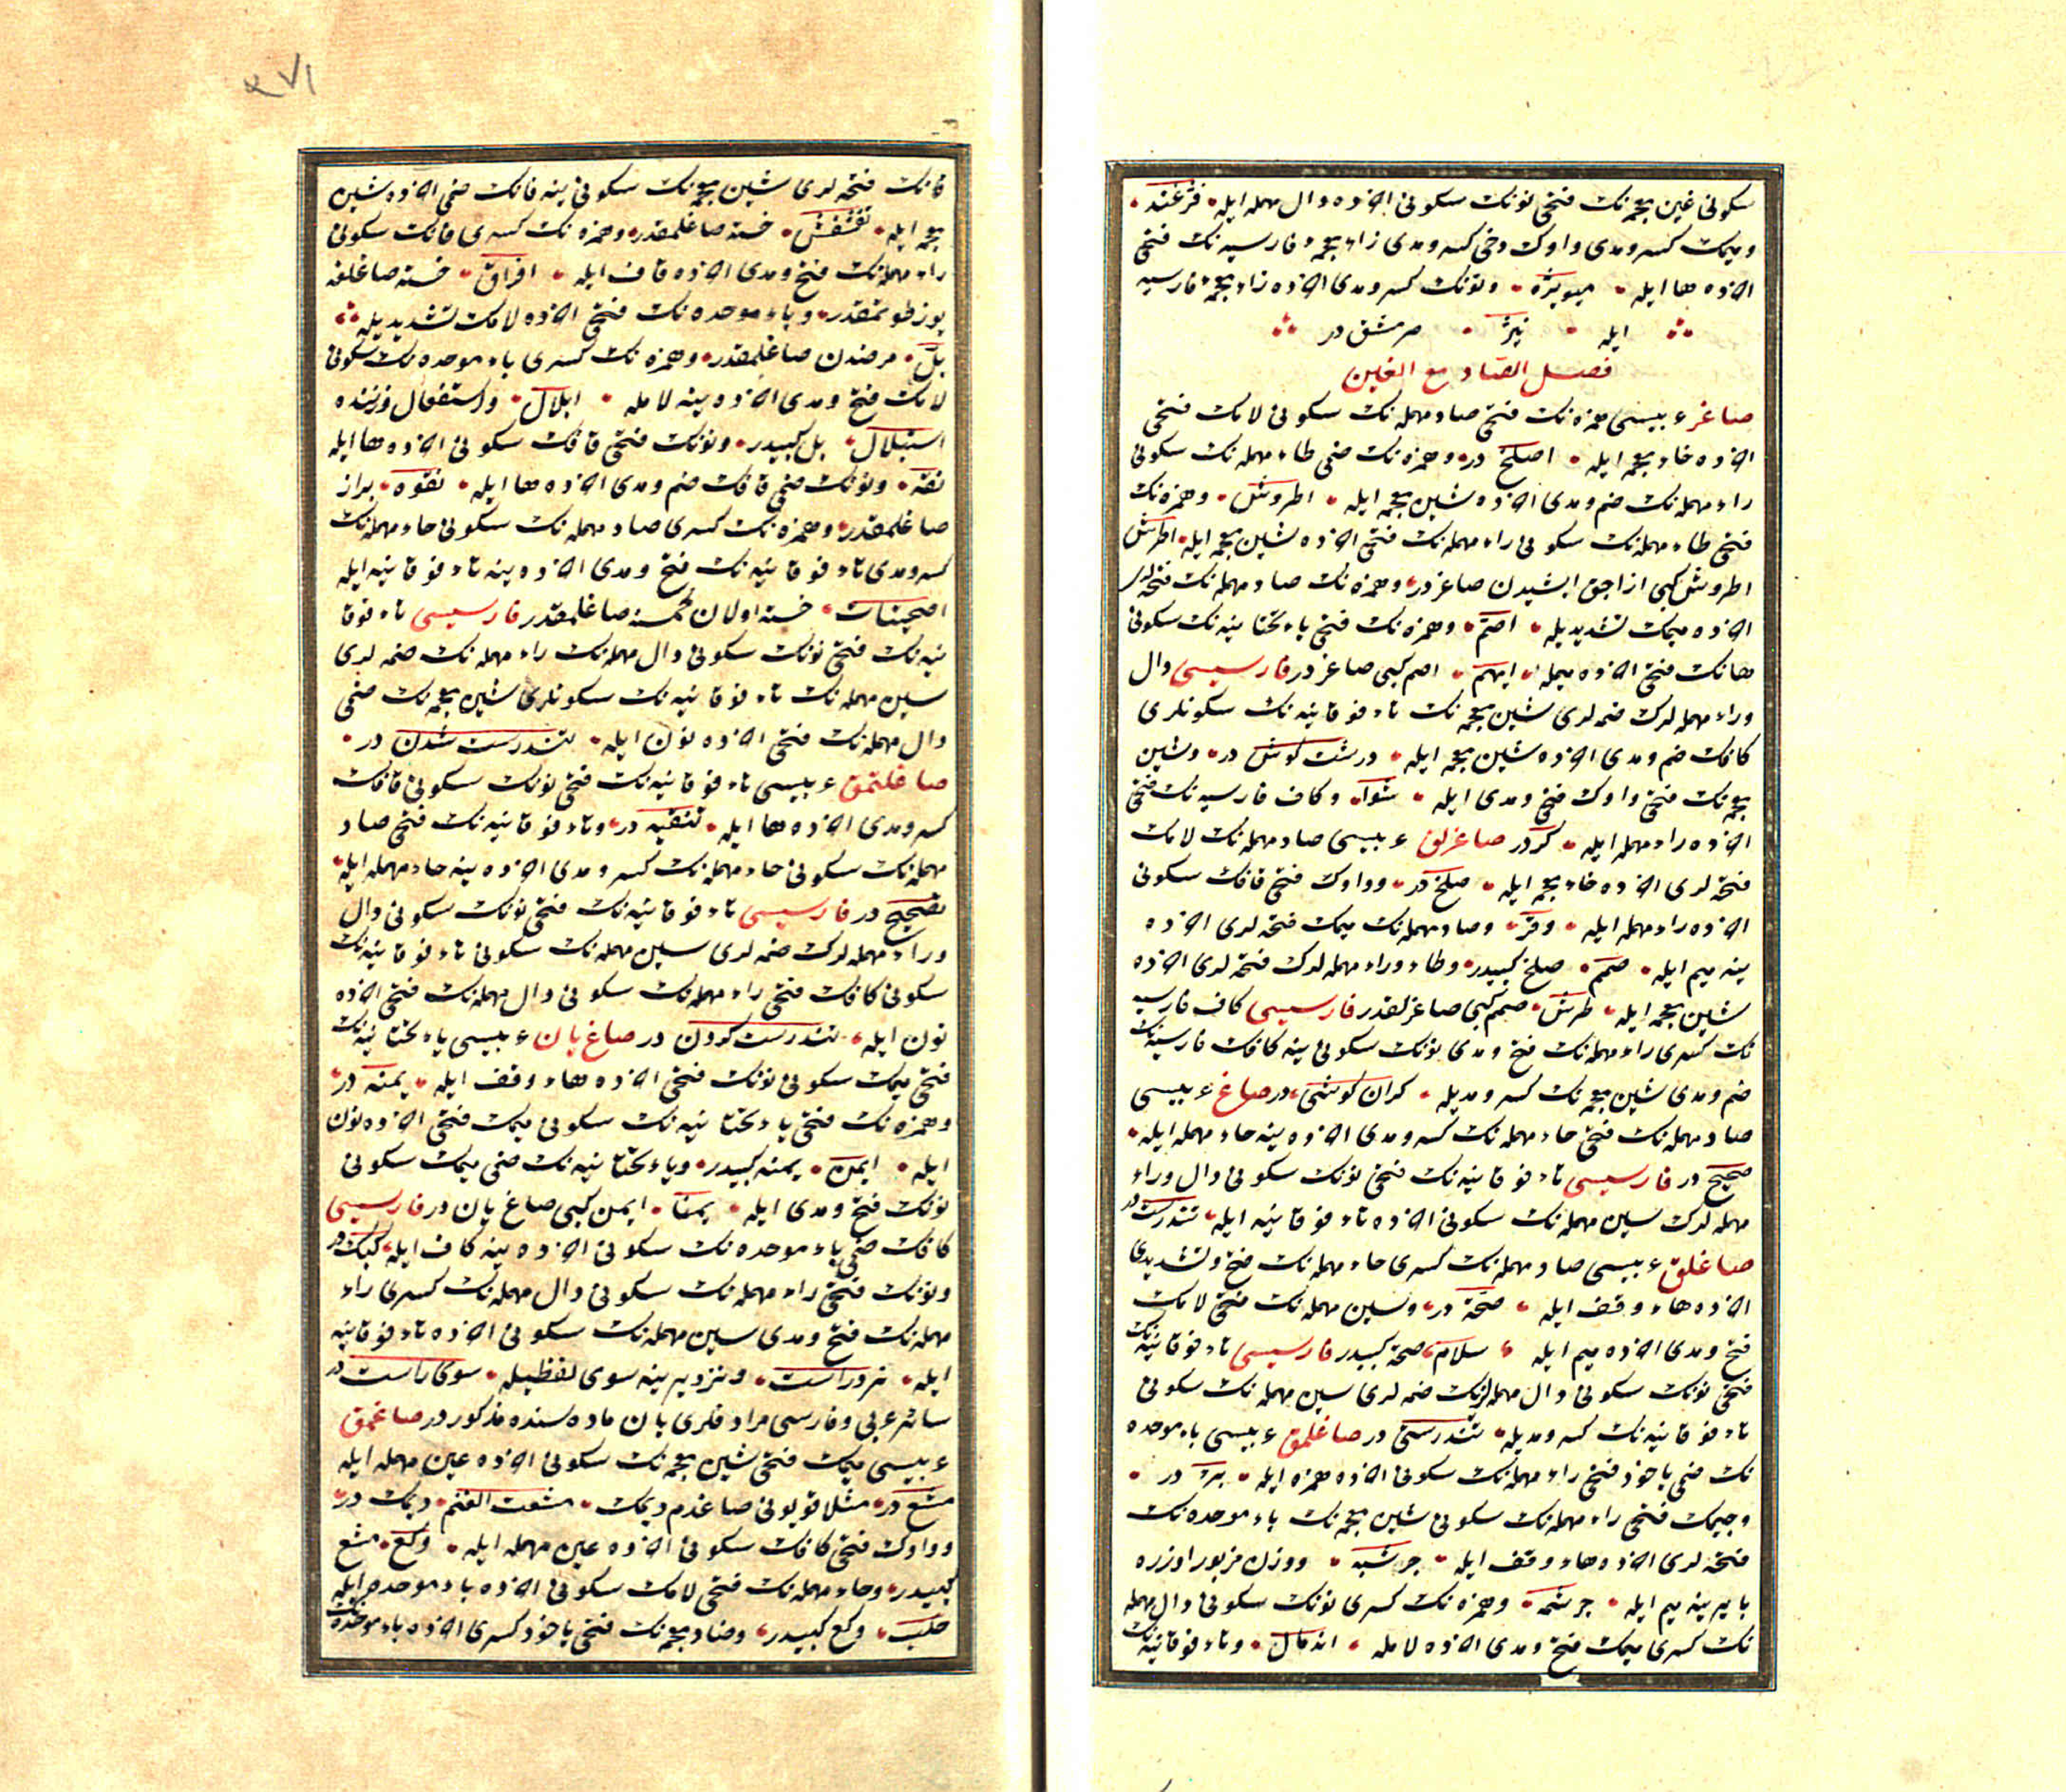 سكونى غين معجمه نك فتحى نونك سكونى آخرده دال مهمله ايله فرغند
و ميمك كسر و مدى واوك دخى كسر و مدى زاء معجمهٔ فارسيه نك فتحى
آخرده ها ايله ميويژه و نونك كسر و مدى آخرده زاء معجمهٔ فارسيه
ايله نيژ صرمشق در
فصل الصاد مع الغين
صاغر عربيسى همزه نك فتحى صاد مهمله نك سكونى لامك فتحى
آخرده خاء معجمه ايله اصلخ در و همزه نك ضمى طاء مهمله نك سكونى
راء مهمله نك ضم و مدى آخرده شين معجمه ايله اطروش و همزه نك
فتحى طاء مهمله نك سكونى راء مهمله نك فتحى آخرده شين معجمه ايله اطرش
اطروش كبى ازاجق ايشيدن صاغر در و همزه نك صاد مهمله نك فتحه لرى
آخرده ميمك تشديديله اصم و همزه نك فتحى ياء تحتانيه نك سكونى
هانك فتحى آخرده ميمله ايهم اصم كبى صاغر در فارسيسى دال
و راء مهمله لرك ضمه لرى شين معجمه نك تاء فوقانيه نك سكونلرى
كافك ضم و مدى آخرده شين معجمه ايله درشت كوش در و شين
معجمه نك فتحى واوك فتح و مدى ايله شوا و كاف فارسيه نك فتحى
آخرده راء مهمله ايله كر در صاغرلق عربيسى صاد مهمله نك لامك
فتحه لرى آخرده خاء معجمه ايله صلخ در و واوك فتحى قافك سكونى
آخرده راء مهمله ايله وقر و صاد مهمله نك ميمك فتحه لرى آخرده
ينه ميم ايله صمم صلخ كبيدر و طاء و راء مهمله لرك فتحه لرى آخرده
شين معجمه ايله طرش صمم كبى صاغرلقدر فارسيسى كاف فارسيه
نك كسرى راء مهمله نك فتح و مدى نونك سكونى ينه كافك فارسيه نك
ضم و مدى شين معجمه نك كسر و مديله كران كوشى در صاغ عربيسى
صاد مهمله نك فتحى حاء مهمله نك كسر و مدى آخرده ينه حاء مهمله ايله
صحيح در فارسيسى تاء فوقانيه نك فتحى نونك سكونى دال و راء
مهمله لرك سين مهمله نك سكونى آخرده تاء فوقانيه ايله تندرست در
صاغلق عربيسى صاد مهمله نك كسرى حاء مهمله نك فتح و تشديدى
آخرده هاء وقف ايله صحة در و سين مهمله نك فتحى لامك
فتح و مدى آخرده ميم ايله سلام صحة كبيدر فارسيسى تاء فوقانيه نك
فتحى نونك سكونى دال مهمله لرنك ضمه لرى سين مهمله نك سكونى
تاء فوقانيه نك كسر و مديله تندرستى در صاغلمق عربيسى باء موحده
نك ضمى ياخود فتحى راء مهمله نك سكونى آخرده همزه ايله برء در
و جيمك فتحى راء مهمله نك سكونى شين معجمه نك باء موحده نك
فتحه لرى آخرده هاء وقف ايله جرشبه و وزن مزبور اوزره
با يرينه ميم ايله جرشمه و همزه نك كسرى نونك سكونى دال مهمله
نك كسرى ميمك فتح و مدى آخرده لامله اندمال و تاء فوقانيه نك
٢٧١
فانك فتحه لرى شين معجمه نك سكونى ينه فانك ضمى آخرده شين
معجمه ايله تقشقش خسته صاغلمقدر و همزه نك كسرى فانك سكونى
راء مهمله نك فتح و مدى آخرده قاف ايله افراق خسته صاغلغه
يوز طوتمقدر و باء موحده نك فتحى آخرده لامك تشديديله
بل مرضدن صاغلمقدر و همزه نك كسرى باء موحده نك سكونى
لامك فتح و مدى آخرده ينه لامله ابلال و استفعال وزننده
استبلال بل كبيدر و نونك فتحى قافك سكونى آخرده ها ايله
نقه و نونك ضمى قافك ضم و مدى آخرده ها ايله نقوه براز
صاغلمقدر و همزه نك كسرى صاد مهمله نك سكونى حاء مهمله نك
كسر و مدى تاء فوقانيه نك فتح و مدى آخرده ينه تاء فوقانيه ايله
خسته اولان كمسنه صاغلمقدر فارسيسى تاء فوقا
نيه نك فتحى نونك سكونى دال مهمله نك راء مهمله نك ضمه لرى
سين مهمله نك تاء فوقانيه نك سكونلرى شين معجمه نك ضمى
دال مهمله نك فتحى آخرده نون ايله تندرست شدن در
صاغلتمق عربيسى تاء فوقانيه نك فتحى نونك سكونى قافك
كسر و مدى آخرده ها ايله تنقيه در و تاء فوقانيه نك فتحى صاد
مهمله نك سكونى حاء مهمله نك كسر و مدى آخرده ينه حاء مهمله ايله
تصحيح در فارسيسى تاء فوقانيه نك فتحى نونك سكونى دال
و راء مهمله لرك ضمه لرى سين مهمله نك سكونى تاء فوقانيه نك
سكونى كافك فتحى راء مهمله نك سكونى دال مهمله نك فتحى آخرده
نون ايله تندرست كردن در صاغ يان عربيسى ياء تحتانيه نك
فتحى ميمك سكونى نونك فتحى آخرده هاء وقف ايله يمنه در
و همزه نك فتحى ياء تحتانيه نك سكونى ميمك فتحى آخرده نون
ايله ايمن يمنه كبيدر و ياء تحتانيه نك ضمى ميمك سكونى
نونك فتح و مدى ايله يمنا ايمن كبى صاغ يان در فارسيسى
كافك ضمى باء موحده نك سكونى آخرده ينه كاف ايله كبك در
و نونك فتحى راء مهمله نك سكونى دال مهمله نك كسرى راء
مهمله نك فتح و مدى سين مهمله نك سكونى آخرده تاء فوقانيه
ايله نردراست و نرد يرينه سوى لفظيله سوى راست در
سائر عربى و فارسى مرادفلرى يان ماده سنده مذكور در صاغمق
عربيسى ميمك فتحى شين معجمه نك سكونى آخرده عين مهمله ايله
مشع در مثلا قويونى صاغدم ديمك مشعت الغنم ديمك در
و واوك فتحى كافك سكونى آخرده عين مهمله ايله وكع مشع
كبيدر و حاء مهمله نك فتحى لامك سكونى آخرده باء موحده ايله
حلب وكع كبيدر و ضاد معجمه نك فتحى ياخود كسرى آخرده باء موحده نك